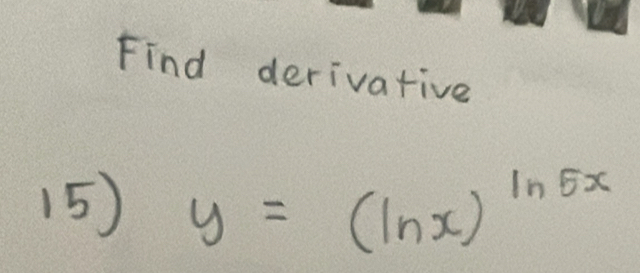 Find derivative
15) y = (lnx)^ln 5x